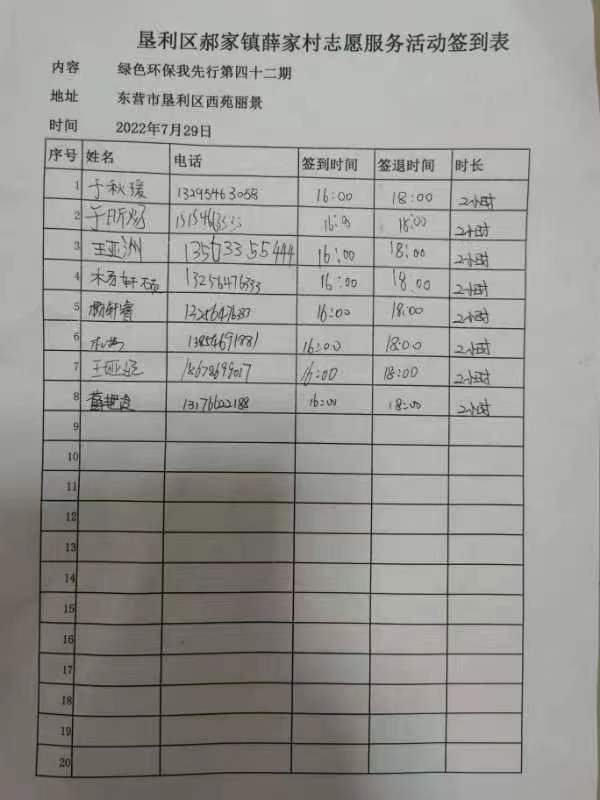 垦利区郝家镇薛家村志愿服务活动签到表
内容 绿色环保我先行第四十二期
地址 东营市垦利区西苑丽景
时间 2022年7月29日
序号 姓名 电话 签到时间 签退时间 时长
1 于秋瑗 13295463058 16:00 18:00 2小时
2 于昕炀 16:00 18:00 2小时
3 王亚洲 13563355444 16:00 18:00 2小时
4 杨轩硕 13256476333 16:00 18:00 2小时
5 杨轩睿 16:00 18:00 2小时
6 13854691881 16:00 18:00 2小时
7 16:00 18:00 2小时
8 13176622188 16:00 18:00 2小时
9
10
11
12
13
14
15
16
17
18
19
20